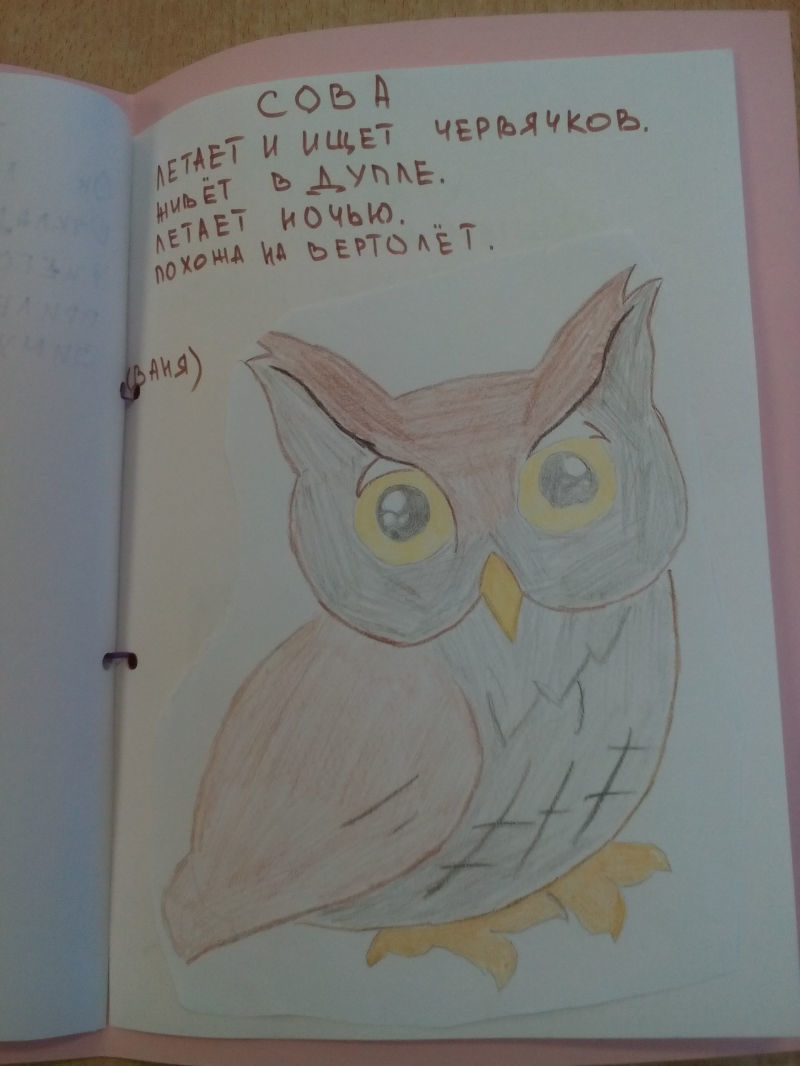 СОВА
ЛЕТАЕТ И ИЩЕТ ЧЕРВЯЧКОВ.
ЖИВЁТ В ДУПЛЕ.
ЛЕТАЕТ НОЧЬЮ.
ПОХОЖА НА ВЕРТОЛЁТ.
(ВАНЯ)